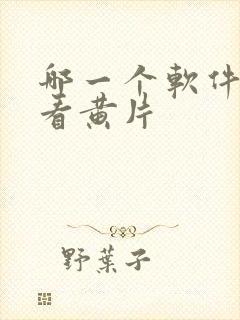 哪一个軟件
看黄片
野葉子